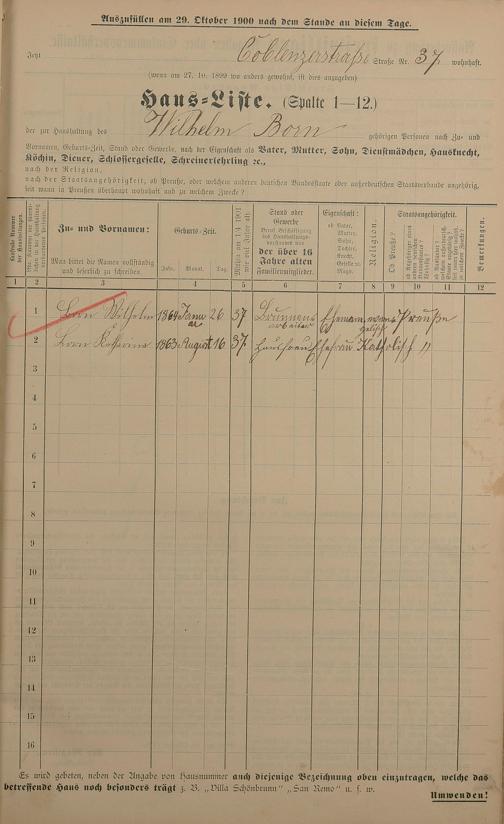 Auszufüllen am 29. Oktober 1900 nach dem Stande an diesem Tage.
Jetzt Coblenzerstraße Straße Nr. 37 wohnhaft.
(wenn am 27. 10. 1899 wo anders gewohnt, ist dies anzugeben)
Haus-Liste. (Spalte 1—12.)
der zur Haushaltung des Wilhelm Born gehörigen Personen nach Zu- und
Vornamen, Geburts-Zeit, Stand oder Gewerbe, nach der Eigenschaft als Vater, Mutter, Sohn, Dienstmädchen, Hausknecht,
Köchin, Diener, Schlossergeselle, Schreinerlehrling ec.,
nach der Religion,
nach der Staatsangehörigkeit, ob Preuße, oder welchem andern deutschen Bundesstaate oder außerdeutschen Staatsverbande angehörig,
seit wann in Preußen überhaupt wohnhaft und zu welchem Zwecke?
Zu- und Vornamen:
Man bittet die Namen vollständig und leserlich zu schreiben.
Geburts-Zeit.
Jahr. Monat. Tag.
Stand oder Gewerbe
der über 16 Jahre alten Familienmitglieder.
Eigenschaft:
ob Vater, Mutter, Sohn, Tochter, Knecht, Geselle, Magd.
Religion.
Staatsangehörigkeit.
Ob Preuße?
Bemerkungen.
1 2 3 4 5 6 7 8 9 10 11 12
1 Born Wilhelm 1864 Januar 26 37 Brunnenarbeiter Ehemann evangelisch Preuße
2 Born Katharina 1863 August 16 37 Hausfrau Ehefrau Katholisch "
3
4
5
6
7
8
9
10
11
12
13
14
15
16
Es wird gebeten, neben der Angabe von Hausnummer auch diejenige Bezeichnung oben einzutragen, welche das
betreffende Haus noch besonders trägt z. B. „Villa Schönbrunn" „San Remo" u. s. w.
Umwenden!